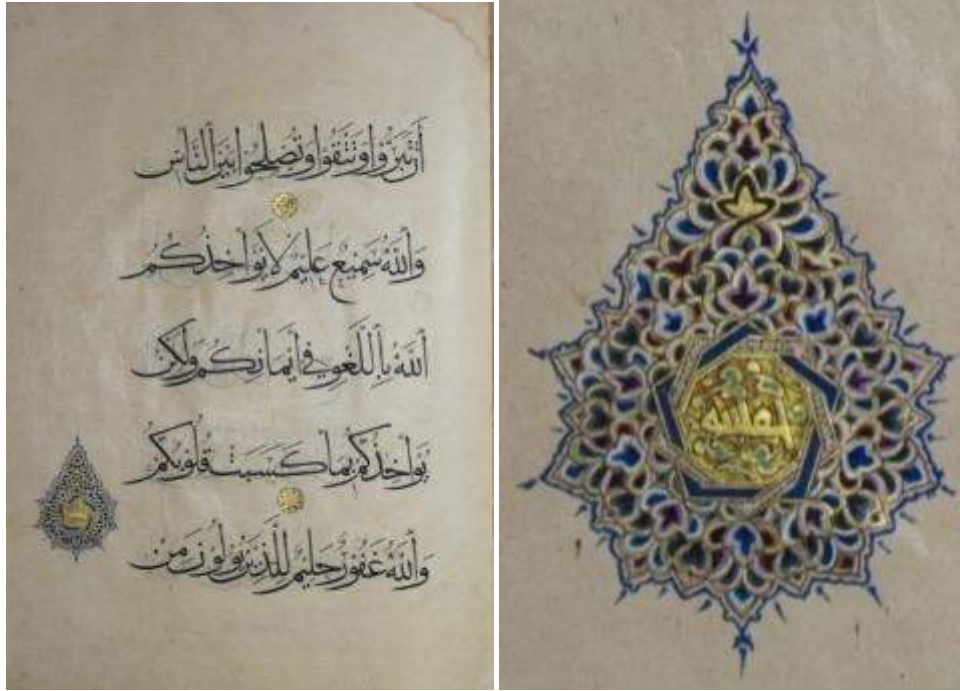 أَن تَبَرُّوا وَتَتَّقُوا وَتُصْلِحُوا بَيْنَ ٱلنَّاسِ
وَٱللَّهُ سَمِيعٌ عَلِيمٌ لَا يُؤَاخِذُكُمُ
ٱللَّهُ بِٱللَّغْوِ فِي أَيْمَانِكُمْ وَلَٰكِن
يُؤَاخِذُكُم بِمَا كَسَبَتْ قُلُوبُكُمْ
وَٱللَّهُ غَفُورٌ حَلِيمٌ لِلَّذِينَ يُؤْلُونَ مِن